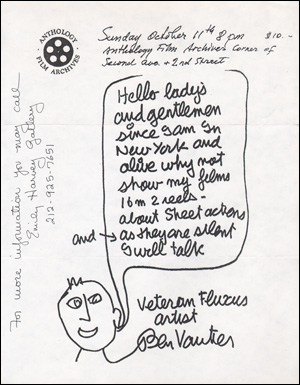 ANTHOLOGY
FILM ARCHIVES
Sunday October 11th 8 pm $10.-
Anthology Film Archives corner of
Second Ave. + 2nd Street
Hello lady's
and gentlemen
since I am In
New York and
alive why not
show my films
16 m 2 reels -
about Street actions
and → as they are silent
I will talk
Veteran Fluxus
artist
Ben Vautier
For more information you may call
Emily Harvey Gallery
212-925-7651